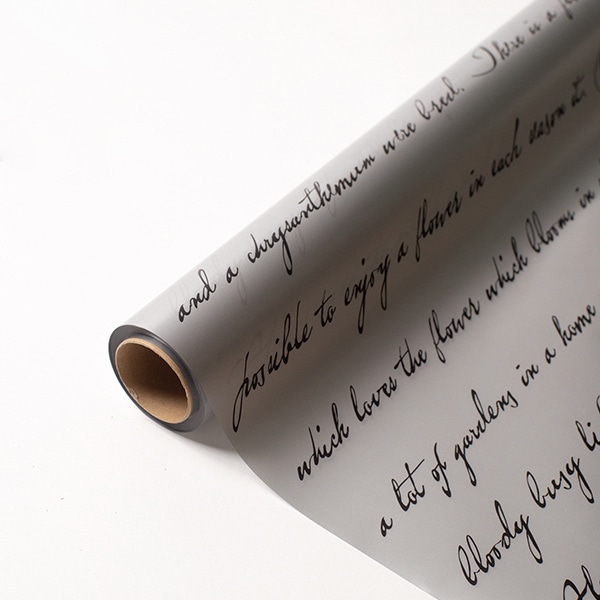 and a chrysanthemum were bred. There is a
possible to enjoy a flower in each season it.
which loves the flower which blooms in
a lot of gardens in a home
bloody busy